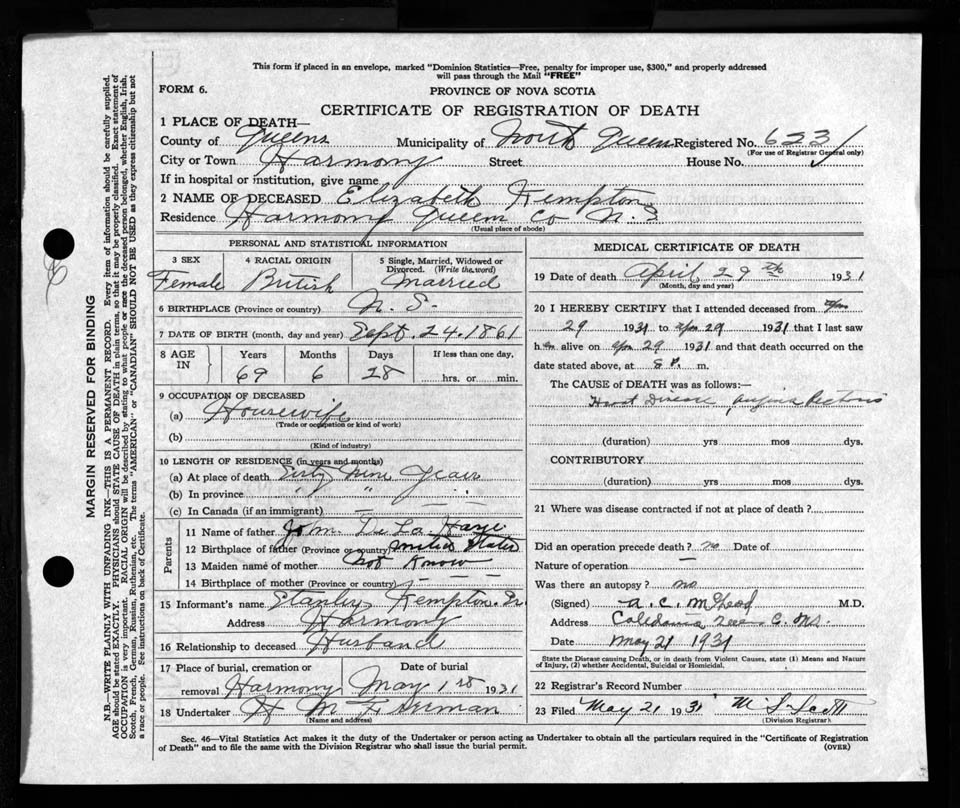 This form if placed in an envelope, marked "Dominion Statistics—Free, penalty for improper use, $300," and properly addressed
will pass through the Mail "FREE"
FORM 6.
PROVINCE OF NOVA SCOTIA
CERTIFICATE OF REGISTRATION OF DEATH
1 PLACE OF DEATH—
County of Queens Municipality of North Queens Registered No. 623
(For use of Registrar General only)
City or Town Harmony Street House No.
If in hospital or institution, give name
2 NAME OF DECEASED Elizabeth Kempton
Residence Harmony Queens Co N.S
(Usual place of abode)
PERSONAL AND STATISTICAL INFORMATION
3 SEX 4 RACIAL ORIGIN 5 Single, Married, Widowed or
Divorced. (Write the word)
Female British Married
6 BIRTHPLACE (Province or country) N. S.
7 DATE OF BIRTH (month, day and year) Sept. 24. 1861
8 AGE IN Years Months Days If less than one day,
69 6 28 hrs. or min.
9 OCCUPATION OF DECEASED
(a) Housewife
(Trade or occupation or kind of work)
(b)
(Kind of industry)
10 LENGTH OF RESIDENCE (in years and months)
(a) At place of death Sixty Nine Years
(b) In province " " "
(c) In Canada (if an immigrant) — —
Parents
11 Name of father John De La Haye
12 Birthplace of father (Province or country) United States
13 Maiden name of mother Not Know
14 Birthplace of mother (Province or country) — — —
15 Informant's name Stanley Kempton. Sr.
Address Harmony
16 Relationship to deceased Husband
17 Place of burial, cremation or Date of burial
removal Harmony May 1st 1931
18 Undertaker H M Freeman
(Name and address)
MEDICAL CERTIFICATE OF DEATH
19 Date of death April 29th 1931
(Month, day and year)
20 I HEREBY CERTIFY that I attended deceased from Apr
29 1931 to Apr 29 1931 that I last saw
her alive on Apr 29 1931 and that death occurred on the
date stated above, at 8 P. m.
The CAUSE OF DEATH was as follows:—
Heart Disease Angina Pectoris
(duration) yrs mos dys.
CONTRIBUTORY
(duration) yrs mos dys.
21 Where was disease contracted if not at place of death?
Did an operation precede death? no Date of
Nature of operation —
Was there an autopsy? no
(Signed) A. C. McLeod M.D.
Address Caledonia, Queens C. N.S.
Date May 21 1931
State the Disease causing Death, or in death from Violent Causes, state (1) Means and Nature
of Injury, (2) whether Accidental, Suicidal or Homicidal.
22 Registrar's Record Number
23 Filed May 21 1931 M S Scott
(Division Registrar)
Sec. 46—Vital Statistics Act makes it the duty of the Undertaker or person acting as Undertaker to obtain all the particulars required in the "Certificate of Registration
of Death" and to file the same with the Division Registrar who shall issue the burial permit.
(OVER)
MARGIN RESERVED FOR BINDING
N.B.—WRITE PLAINLY WITH UNFADING INK—THIS IS A PERMANENT RECORD. Every item of information should be carefully supplied.
AGE should be stated EXACTLY. PHYSICIANS should STATE CAUSE OF DEATH in plain terms, so that it may be properly classified. Exact statement of
OCCUPATION is very important. RACIAL ORIGIN will be described by stating to what people or race the deceased person belonged, whether English, Irish,
Scotch, French, German, Russian, Ruthenian, etc. The terms "AMERICAN" or "CANADIAN" SHOULD NOT BE USED as they express citizenship but not
a race or people. See instructions on back of Certificate.